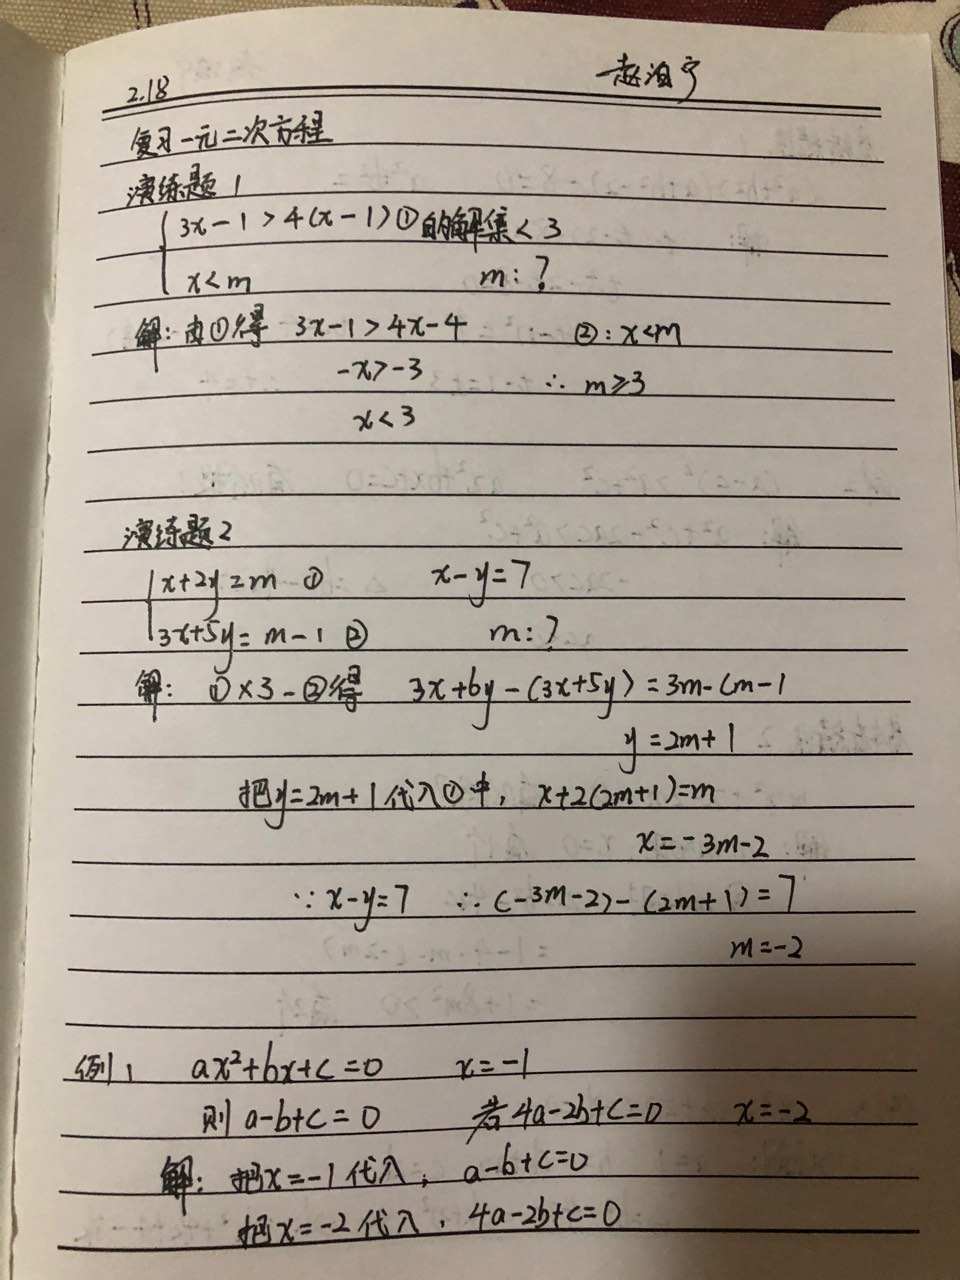 2.18 赵洎宁
复习一元二次方程
演练题1
{ 3x-1>4(x-1)① 的解集<3
x<m m:?
解:由①得 3x-1>4x-4 ②:x<m
-x>-3 ∴ m≥3
x<3
演练题2
{ x+2y=m ① x-y=7
3x+5y=m-1 ② m:?
解: ①×3-②得 3x+6y-(3x+5y)=3m-(m-1
y=2m+1
把y=2m+1代入①中, x+2(2m+1)=m
x=-3m-2
∵x-y=7 ∴(-3m-2)-(2m+1)=7
m=-2
例1 ax²+bx+c=0 x=-1
则 a-b+c=0 若4a-2b+c=0 x=-2
解: 把x=-1代入, a-b+c=0
把x=-2代入, 4a-2b+c=0